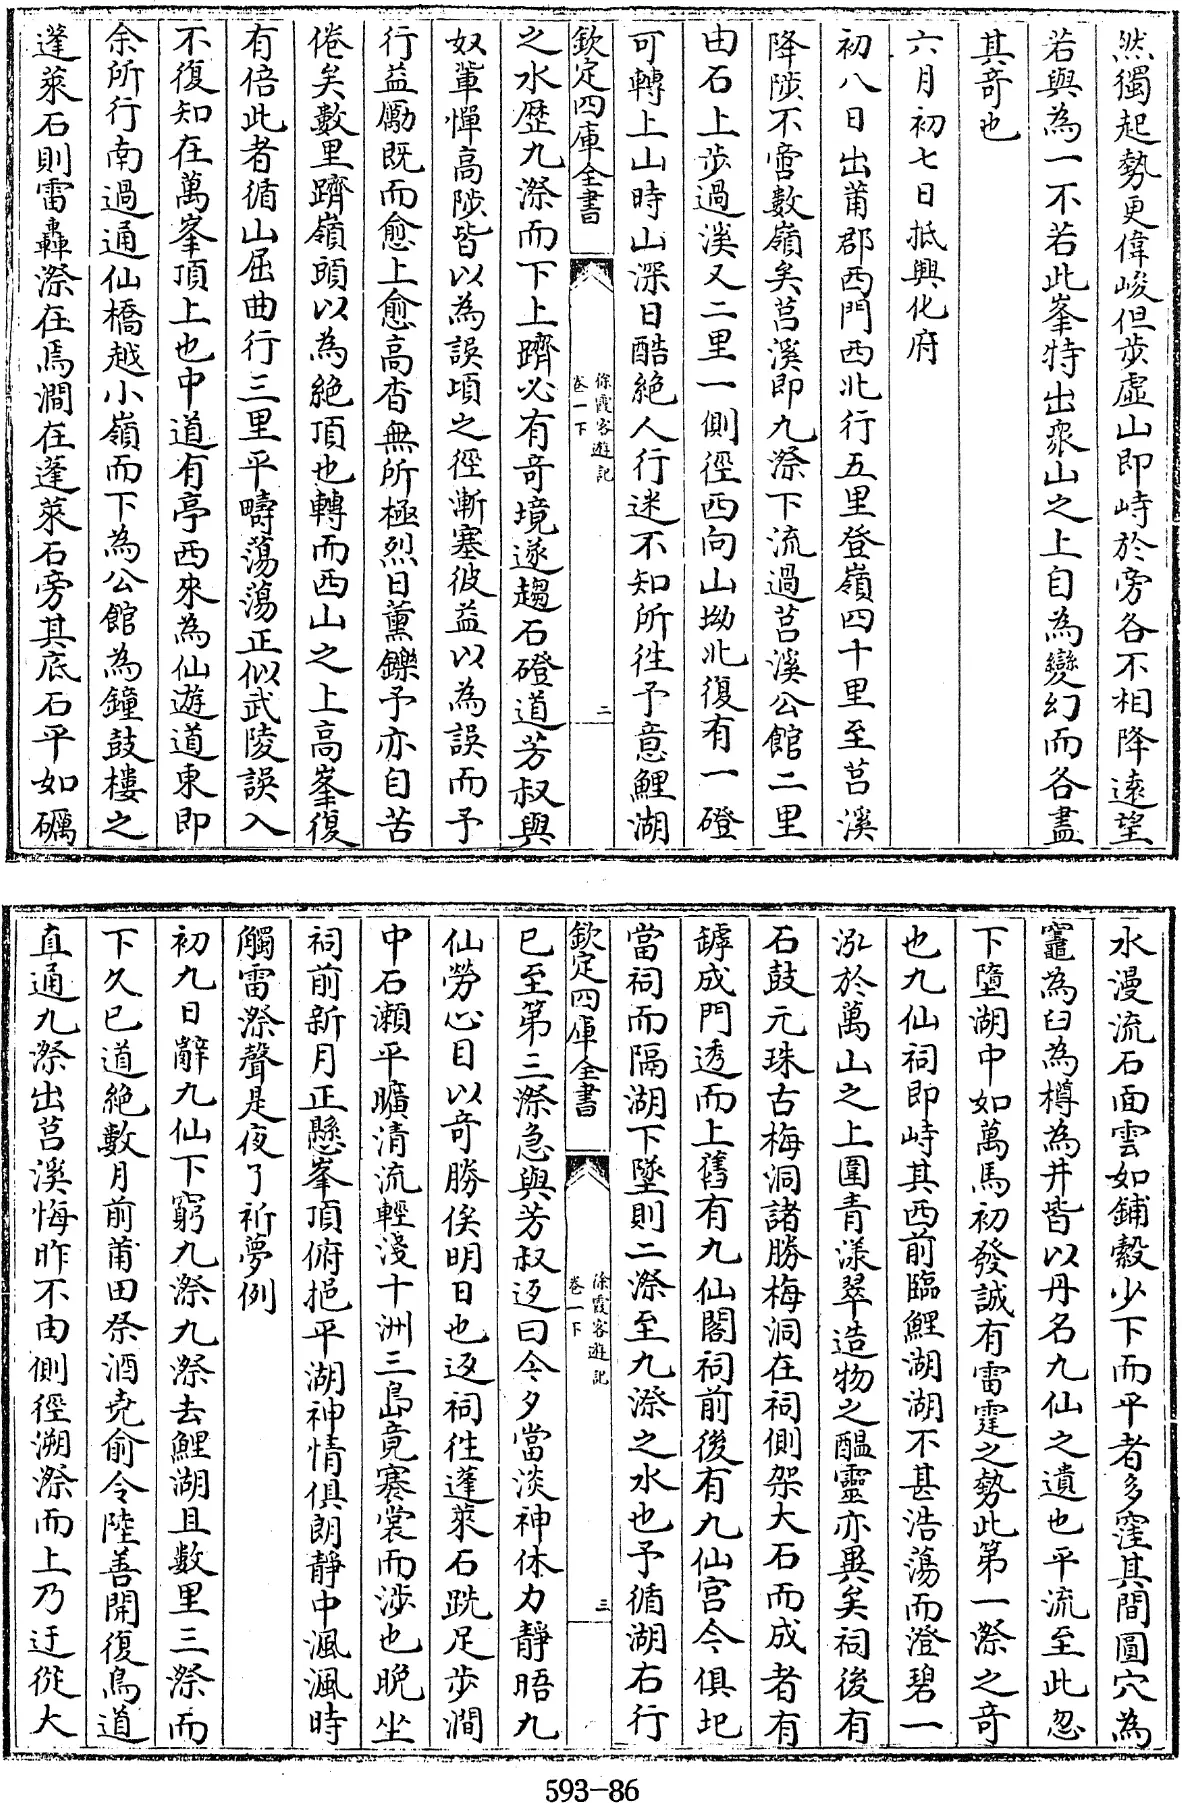 然獨起勢更偉峻但步虛山即峙於旁各不相降遠望
若與為一不若此峯特出衆山之上自為變幻而各盡
其奇也
六月初七日抵興化府
初八日出莆郡西門西北行五里登嶺四十里至莒溪
降陟不啻數嶺矣莒溪即九漈下流過莒溪公館二里
由石上步過溪又二里一側徑西向山坳北復有一磴
可轉上山時山深日酷絶人行迷不知所徃予意鯉湖
欽定四庫全書
徐霞客遊記
卷一下
二
之水歴九漈而下上躋必有奇境遂趨石磴道芳叔與
奴輩憚高陟皆以為誤頃之徑漸塞彼益以為誤而予
行益勵既而愈上愈高杳無所極烈日薰鑠予亦自苦
倦矣數里躋嶺頭以為絶頂也轉而西山之上高峯復
有倍此者循山屈曲行三里平疇蕩蕩正似武陵誤入
不復知在萬峯頂上也中道有亭西來為仙遊道東即
余所行南過通仙橋越小嶺而下為公館為鐘鼓樓之
蓬萊石則雷轟漈在焉澗在蓬萊石旁其底石平如礪
水漫流石面雲如鋪縠少下而平者多窪其間圓穴為
竈為臼為樽為井皆以丹名九仙之遺也平流至此忽
下墮湖中如萬馬初發誠有雷霆之勢此第一漈之奇
也九仙祠即峙其西前臨鯉湖湖不甚浩蕩而澄碧一
泓於萬山之上圍青漾翠造物之醖靈亦異矣祠後有
石鼓元珠古梅洞諸勝梅洞在祠側架大石而成者有
罅成門透而上舊有九仙閣祠前後有九仙宫今俱圮
當祠而隔湖下墜則二漈至九漈之水也予循湖右行
欽定四庫全書
徐霞客遊記
卷一下
三
已至第三漈急與芳叔返曰今夕當淡神休力靜晤九
仙勞心目以奇勝俟明日也返祠徃蓬萊石跣足步澗
中石瀬平曠清流輕淺十洲三島竟褰裳而涉也晩坐
祠前新月正懸峯頂俯挹平湖神情俱朗靜中渢渢時
觸雷漈聲是夜了祈夢例
初九日辭九仙下窮九漈九漈去鯉湖且數里三漈而
下久已道絶數月前莆田祭酒堯俞令陸善開復鳥道
直通九漈出莒溪悔昨不由側徑溯漈而上乃迂從大
593-86